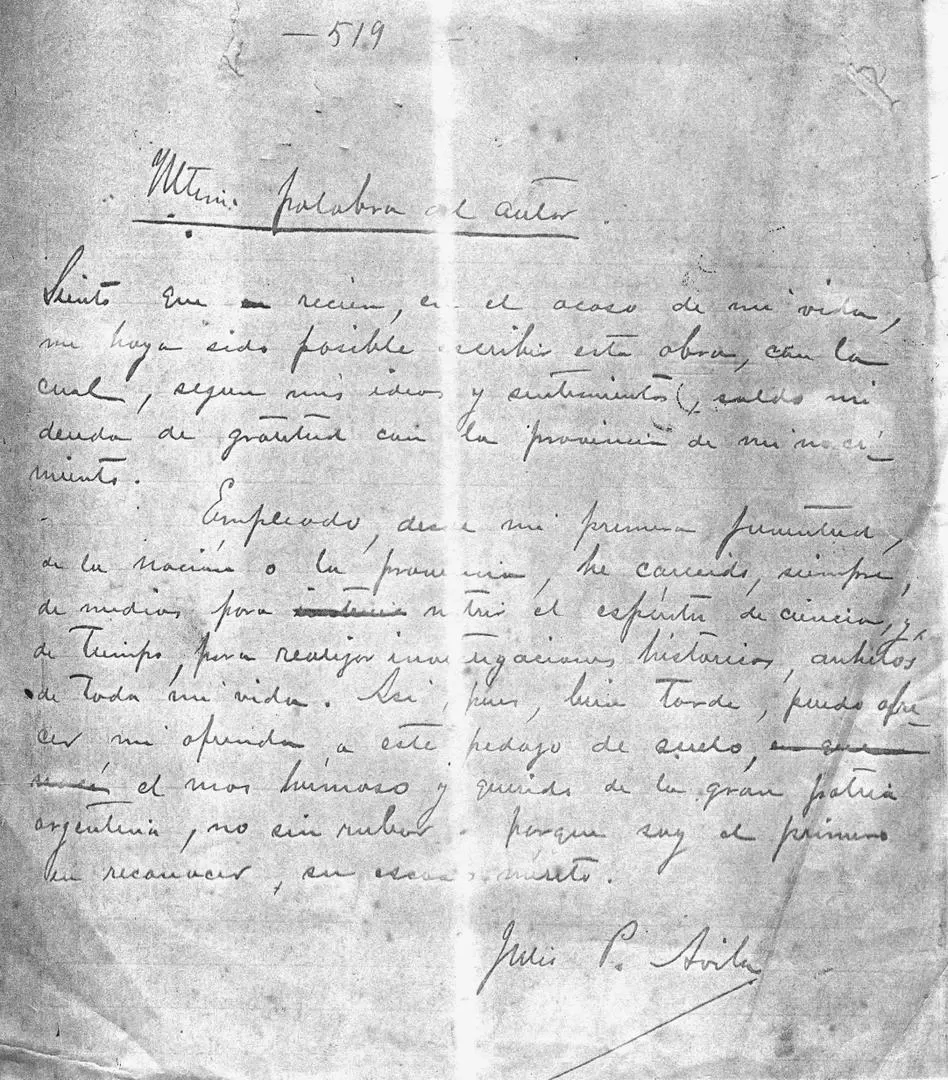 — 519 —
Ultima palabra del autor
Siento que recien, en el ocaso de mi vida,
me haya sido posible escribir esta obra, con la
cual, segun mis ideas y sentimientos, saldo mi
deuda de gratitud con la provincia de mi naci-
miento.
Empleado, desde mi primera juventud,
de la nación o la provincia, he carecido, siempre,
de medios para nutrir el espíritu de ciencia, y,
de tiempo, para realizar investigaciones historicas, anhelos
de toda mi vida. Asi, pues, bien tarde, puedo ofre-
cer mi ofrenda a este pedazo de suelo,
el mas hermoso y querido de la gran patria
argentina, no sin rubor, porque soy el primero
en reconocer, su escaso merito.
Julio P. Avila